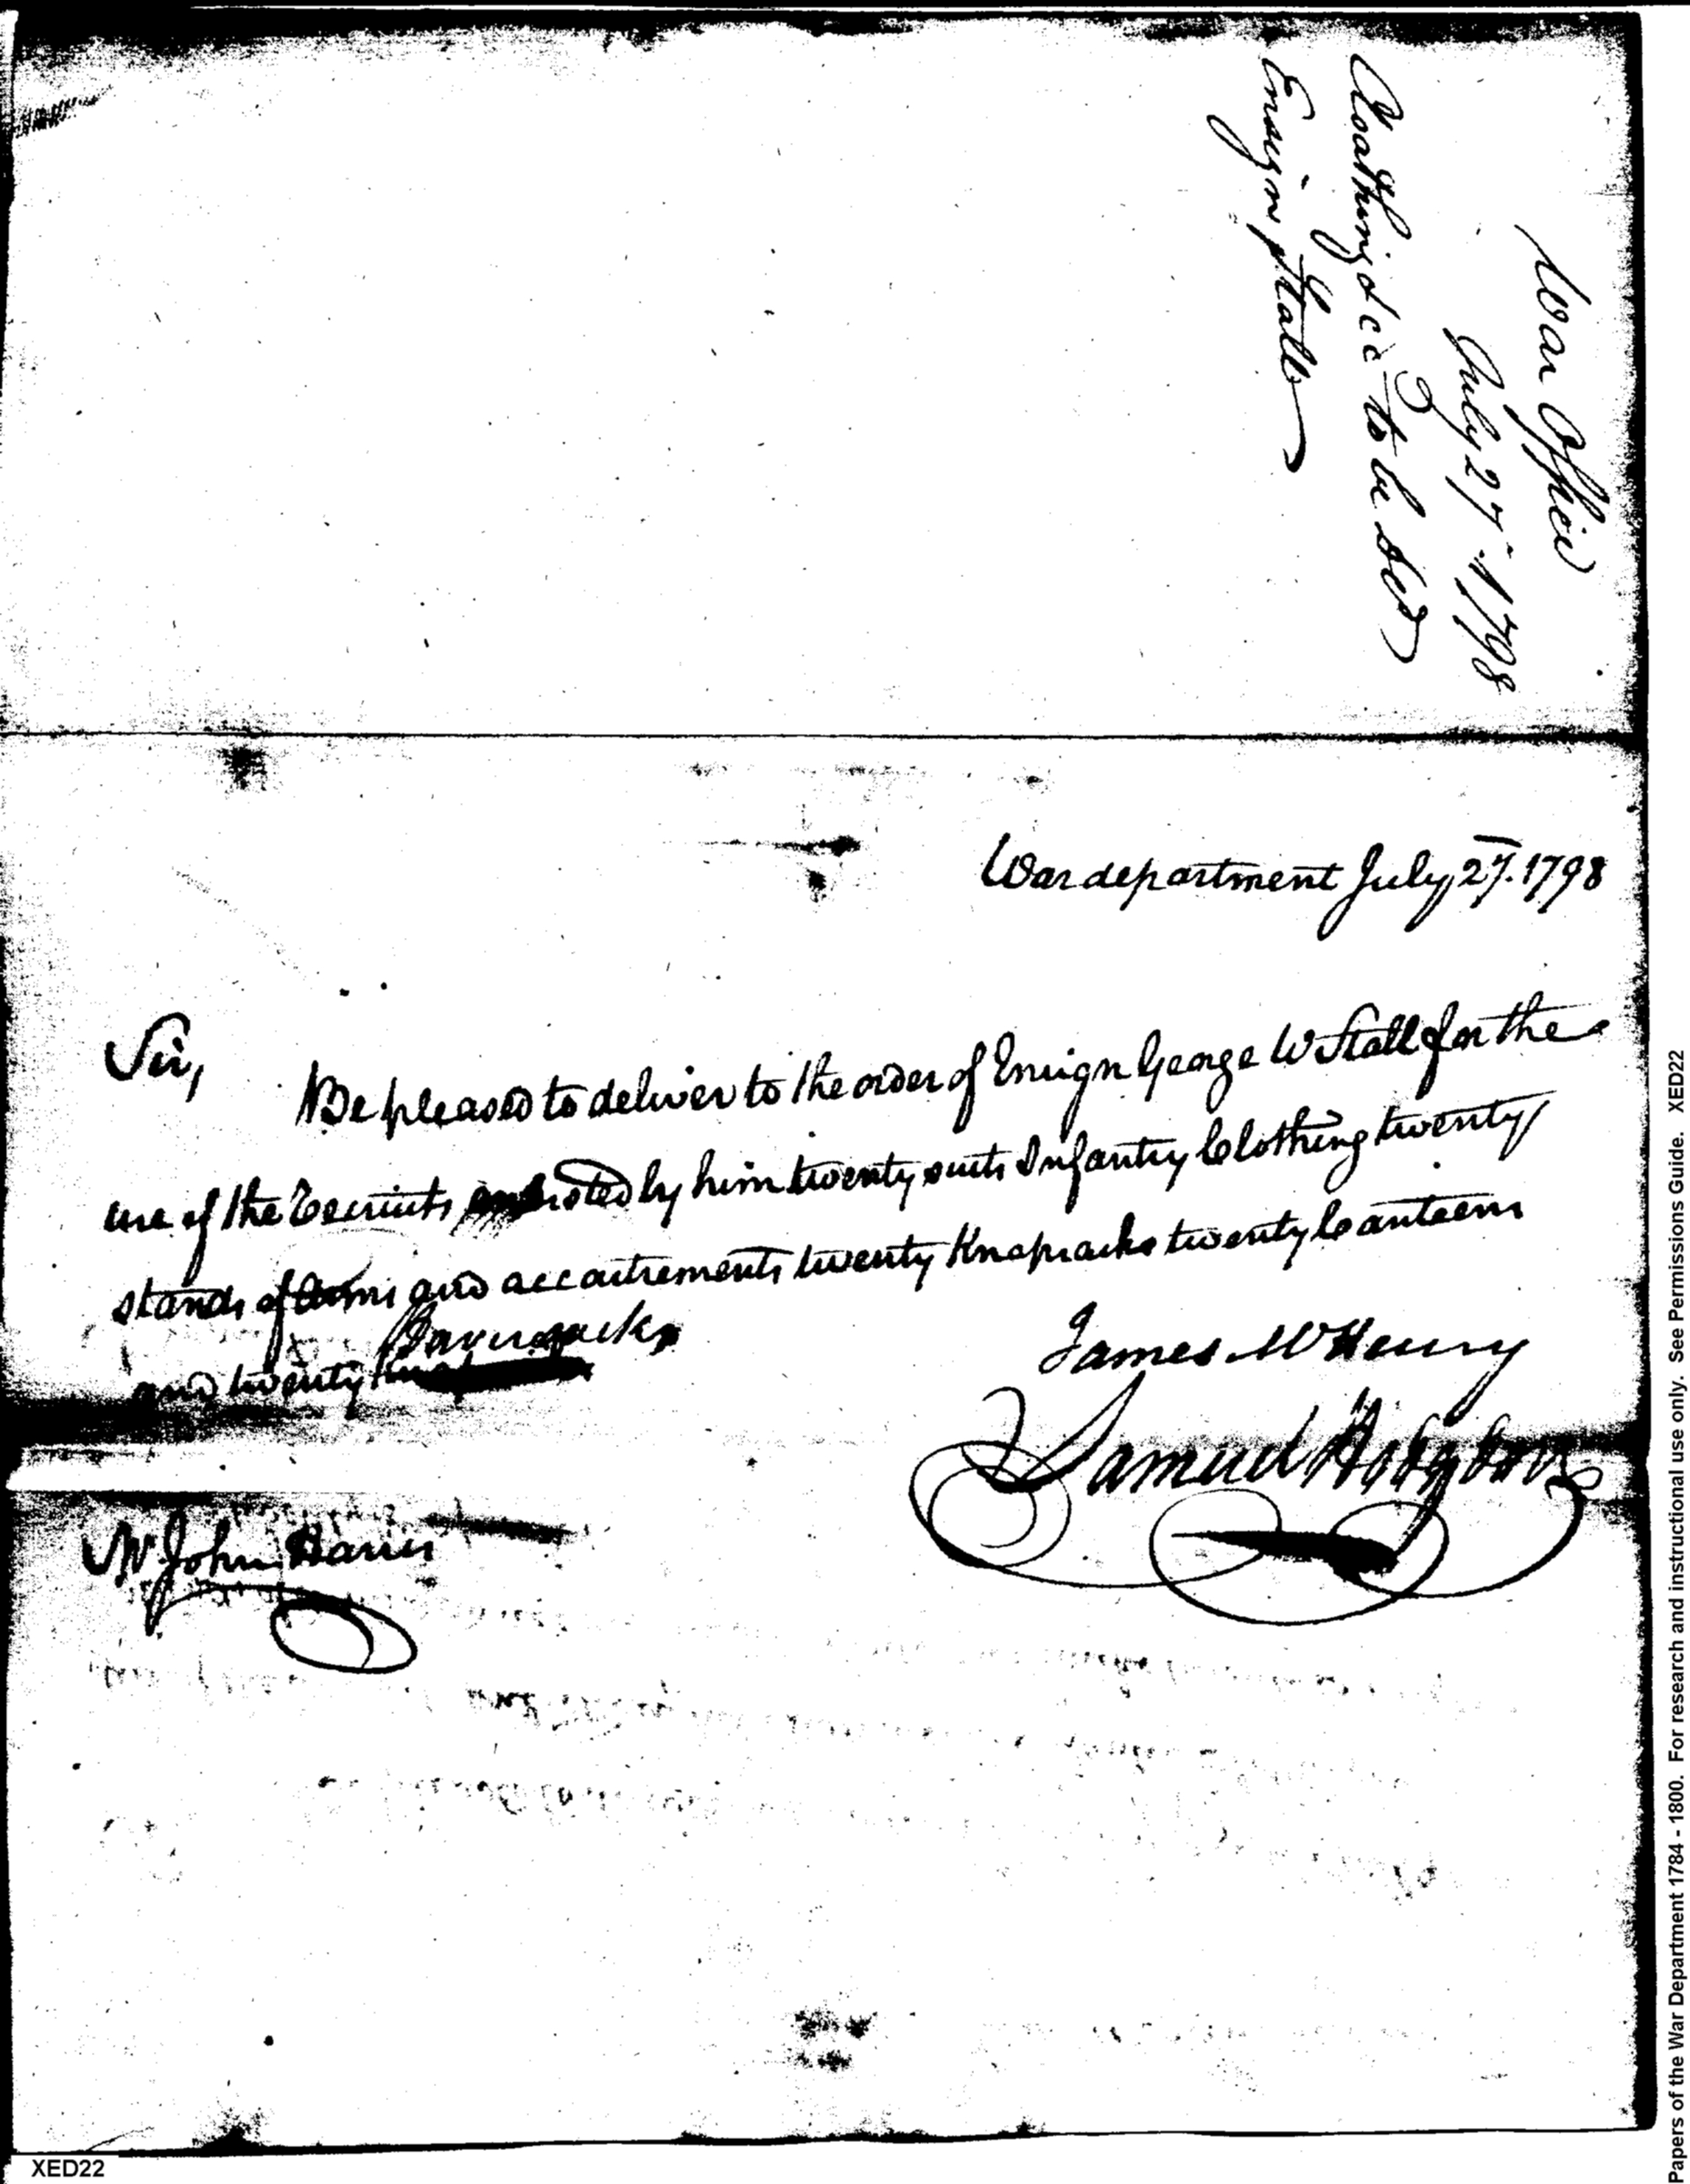 War Office
July 27. 1798
Cloathing &cc to be ded
Ensign Stall
War department July 27. 1798
Sir,
Be pleased to deliver to the order of Ensign George W Stall for the
use of the Recruits enlisted by him twenty suits Infantry Clothing twenty
stands of Arms and accoutrements twenty Knapsacks twenty Canteens
Haversacks
and twenty
James McHenry
Samuel Hodgdon
Mr John Harris
XED22
Papers of the War Department 1784 - 1800. For research and instructional use only. See Permissions Guide. XED22